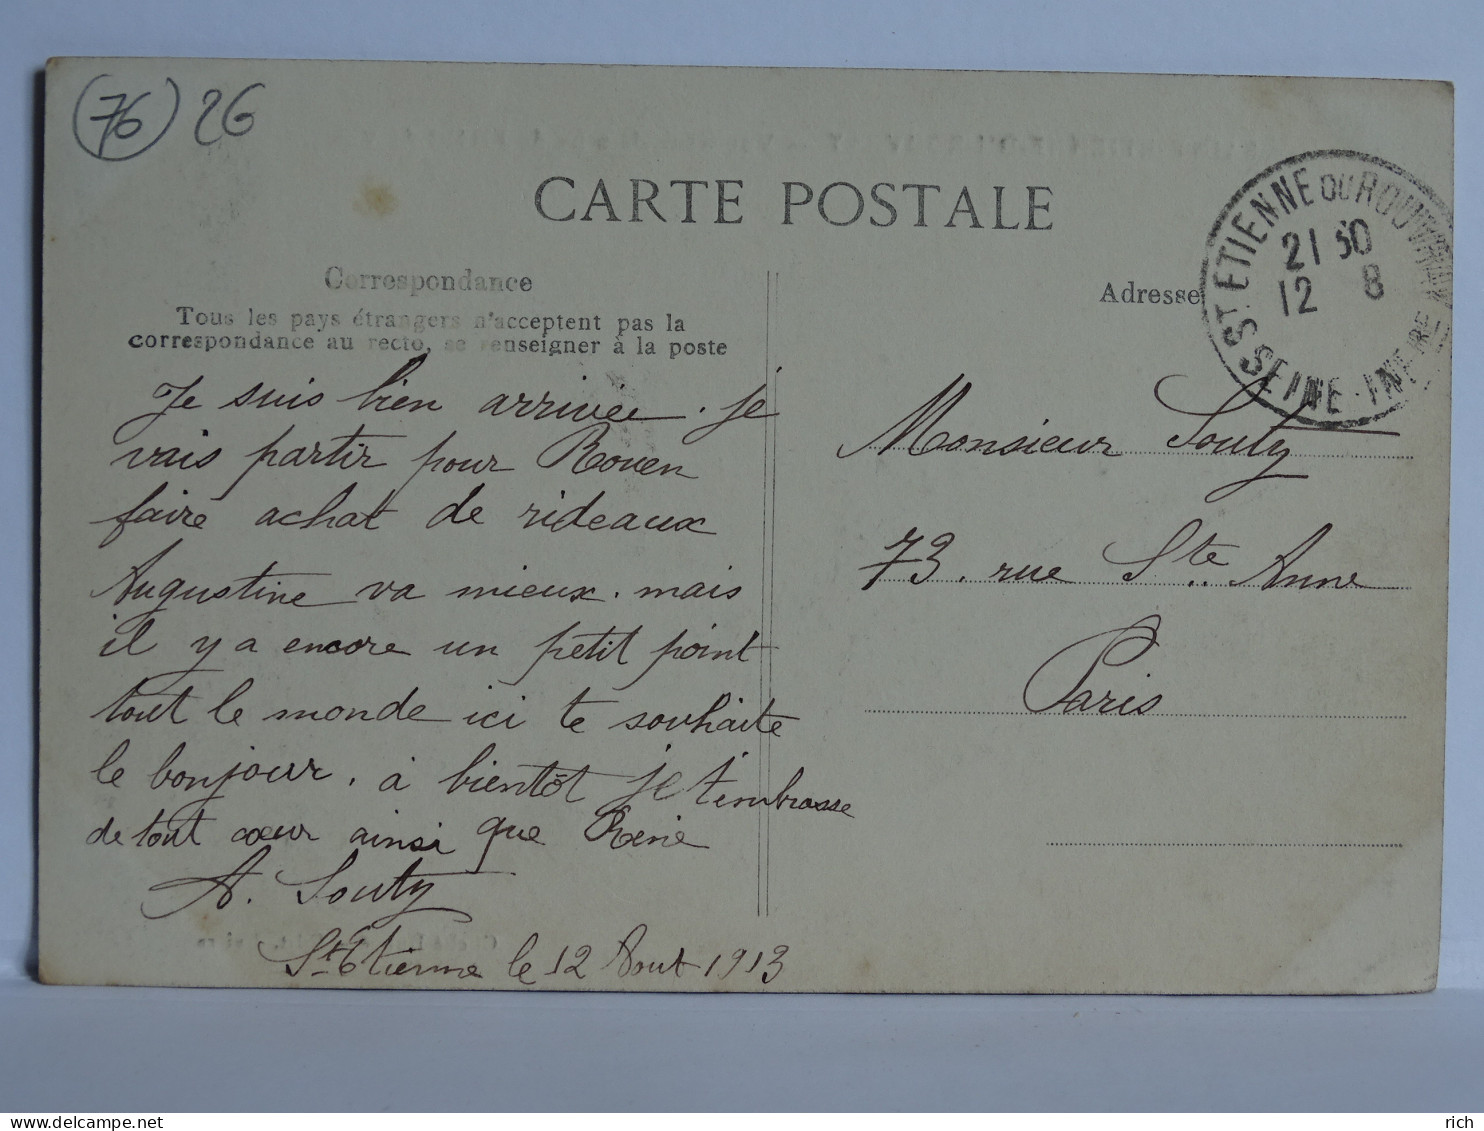 (76) 26
CARTE POSTALE
Correspondance
Tous les pays étrangers n'acceptent pas la
correspondance au recto, se renseigner à la poste
Je suis bien arrivée. je
vais partir pour Rouen
faire achat de rideaux
Augustine va mieux. mais
il y a encore un petit point
tout le monde ici te souhaite
le bonjour. à bientôt je t'embrasse
de tout cœur ainsi que René
A. Souty
St Etienne le 12 Aout 1913
Adresse
ST ETIENNE DU ROUVRAY
21 30
12 8
SEINE-INFRE
Monsieur Souty
73. rue Ste Anne
Paris
www.delcampe.net
rich